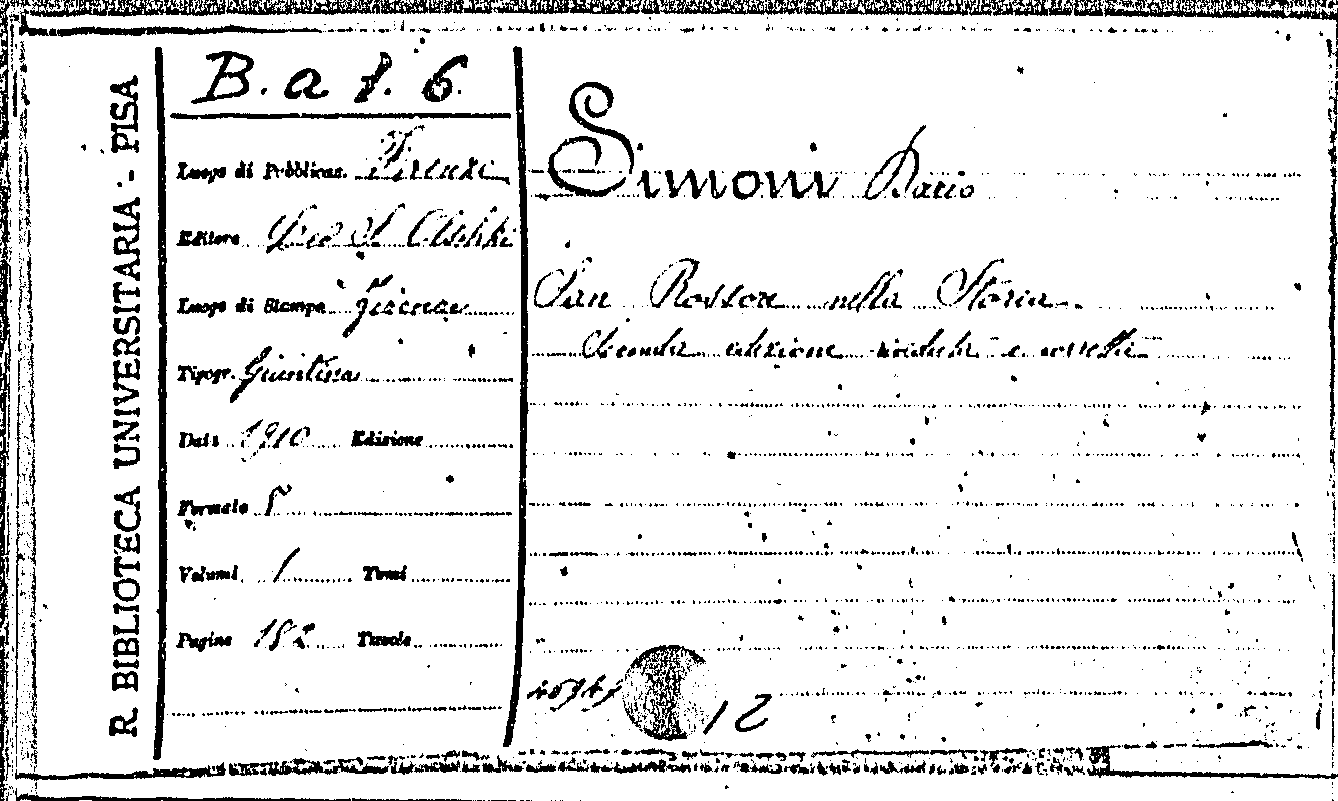 R. BIBLIOTECA UNIVERSITARIA - PISA
B. a 8. 6.
Luogo di Pubblicaz. Firenze
Editore Leo S. Olschki
Luogo di Stampa Firenze
Tipogr. Giuntina
Data 1910 Edizione
Formato 8
Volumi 1 Tomi
Pagine 182 Tavole
Simoni Dario
San Rossore nella Storia
Seconda edizione riveduta e corretta
12